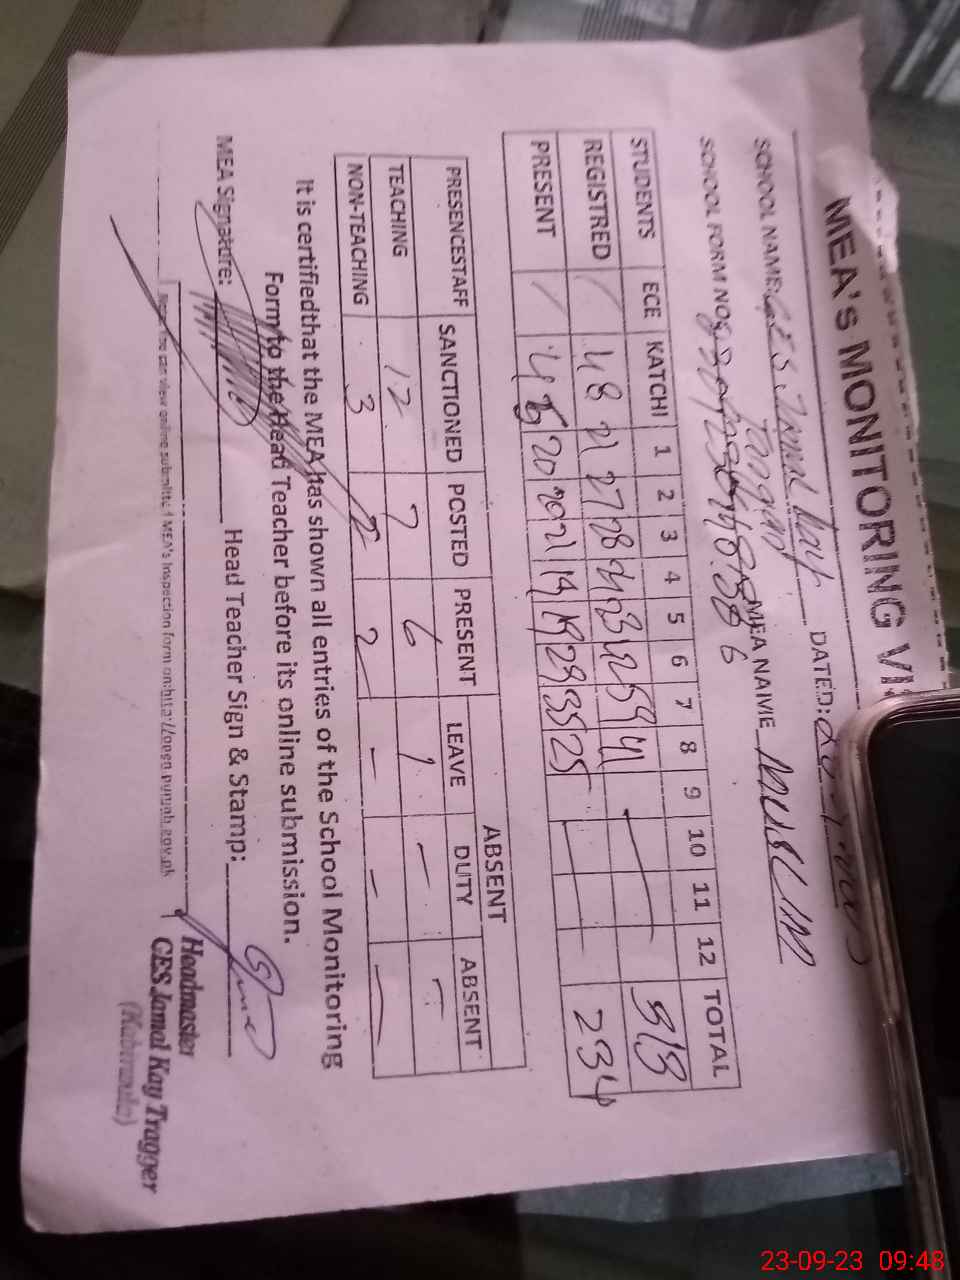 MEA'S MONITORING
SCHOOL NAME: GES Jamal Kay DATED:
SCHOOL FORM NO MEA NAME MUSLIM
STUDENTS ECE KATCHI 1 2 3 4 5 6 7 8 9 10 11 12 TOTAL
REGISTRED / 48 21 27 28 59 41 313
PRESENT / 20 20 21 19 19 29 35 25 234
PRESENCESTAFF SANCTIONED POSTED PRESENT ABSENT
LEAVE DUTY ABSENT
TEACHING 12 7 6 1 – –
NON-TEACHING 3 2 2 – – –
It is certifiedthat the MEA has shown all entries of the School Monitoring
Form to the Head Teacher before its online submission.
MEA Signature: Head Teacher Sign & Stamp:
can view online submitted MEA's Inspection form on:http://open.punjab.gov.pk
Headmaster
GES Jamal Kay Tragger
23-09-23 09:48